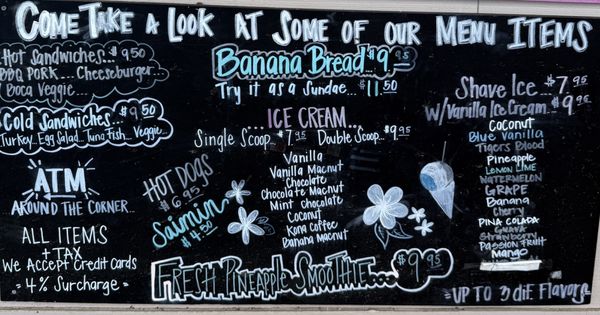 COME TAKE A LOOK AT SOME OF OUR MENU ITEMS
HOT SANDWICHES $9.50
BBQ PORK... CHEESEBURGER...
BOCA VEGGIE...
COLD SANDWICHES... $9.50
TURKEY... EGG SALAD... TUNA FISH... VEGGIE
ATM
AROUND THE CORNER...
ALL ITEMS
+ TAX
WE ACCEPT CREDIT CARDS
= 4% SURCHARGE =
BANANA BREAD... $9.95
TRY IT AS A SUNDAE... $11.50
...ICE CREAM...
SINGLE SCOOP... $7.95 DOUBLE SCOOP... $9.95
VANILLA
VANILLA MACNUT
CHOCOLATE
CHOCOLATE MACNUT
MINT CHOCOLATE
COCONUT
KONA COFFEE
BANANA MACNUT
HOT DOGS
$6.95
SAIMIN
$4.50
FRESH PINEAPPLE SMOOTHIE... $9.95
SHAVE ICE... $7.95
W/ VANILLA ICE CREAM... $9.95
COCONUT
BLUE VANILLA
TIGERS BLOOD
PINEAPPLE
LEMON LIME
WATERMELON
GRAPE
BANANA
CHERRY
PINA COLADA
GUAVA
STRAWBERRY
PASSION FRUIT
MANGO
UP TO 3 DIF. FLAVORS